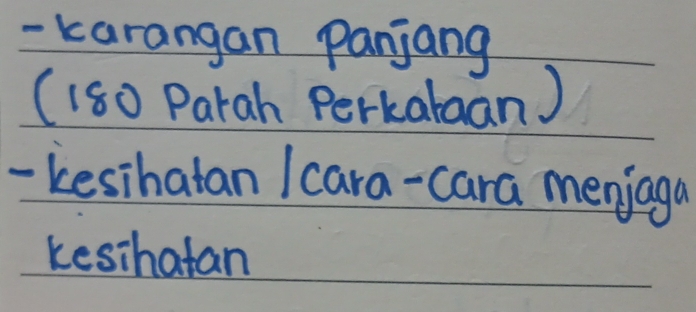 - Karangan Panjang
(180 Patah Perkataan)
- kesihatan / cara - cara menjaga
kesihatan